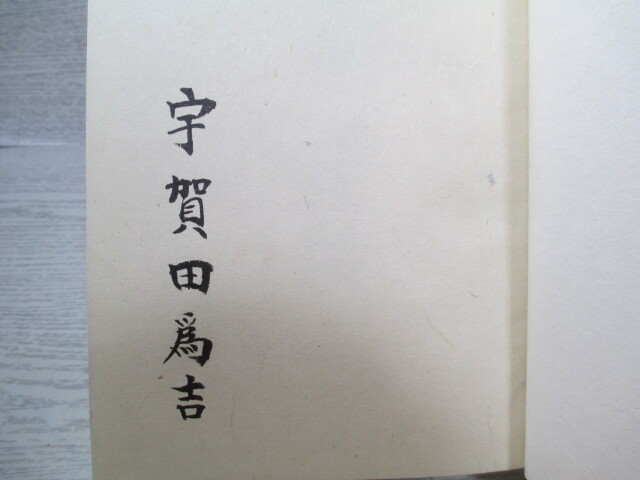 宇賀田爲吉